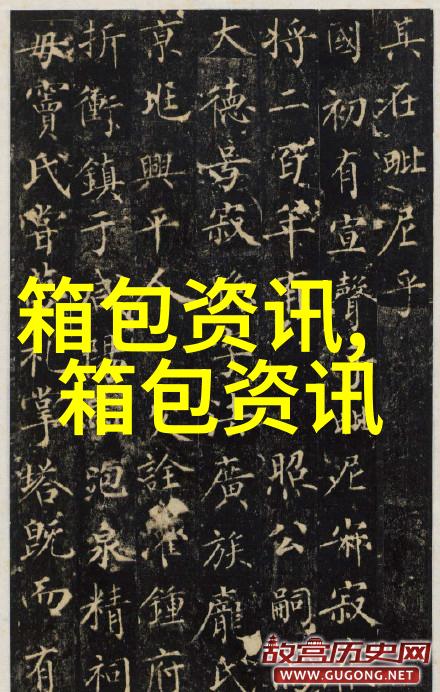 其在毗尼乎
國初有宣聲尼寂
将二百年有照公嗣
大德号寂廣族龐氏
京兆興平人詮鍾府
折衝鎮于泉精祠
毋竇氏嘗掌塔既而有
箱包资讯,
箱包资讯
故宫历史网
WWW.GUGONG.NET